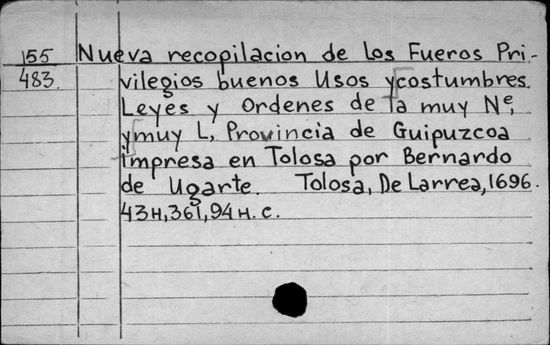 155 Nueva recopilacion de los Fueros Pri-
483. vilegios buenos Usos y costumbres.
Leyes y Ordenes de la muy Ne,
y muy L, Provincia de Guipuzcoa
impresa en Tolosa por Bernardo
de Ugarte. Tolosa, De Larrea, 1696.
43H, 361, 94H. c.